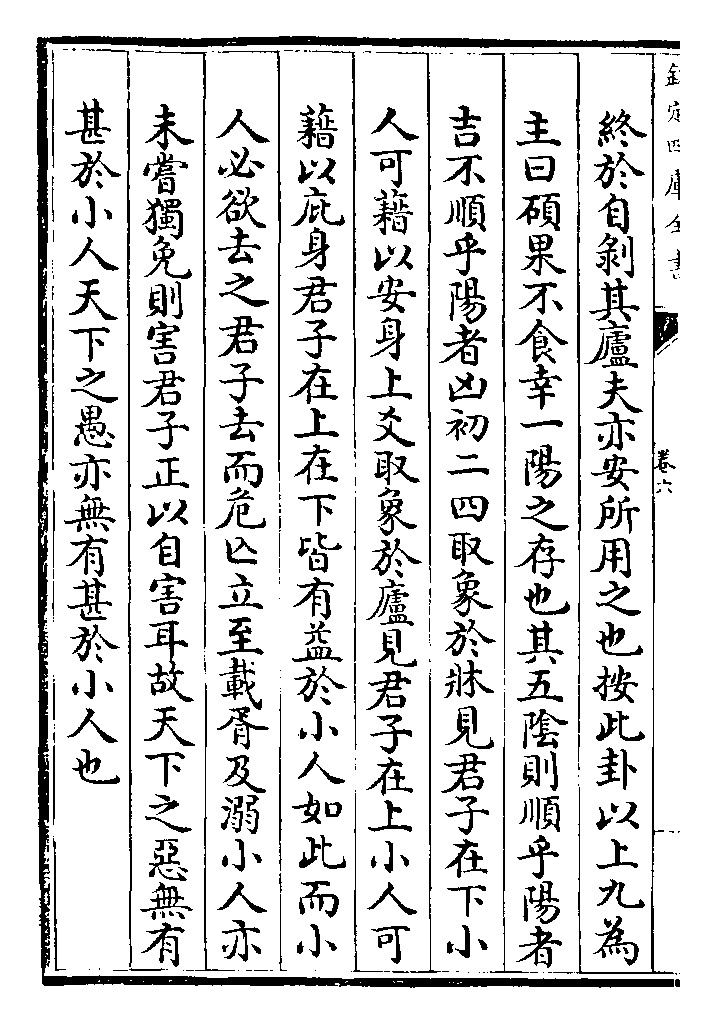 欽定四庫全書
卷六
終於自剝其廬夫亦安所用之也按此卦以上九為
主曰碩果不食幸一陽之存也其五陰則順乎陽者
吉不順乎陽者凶初二四取象於牀見君子在下小
人可藉以安身上爻取象於廬見君子在上小人可
藉以庇身君子在上在下皆有益於小人如此而小
人必欲去之君子去而危亡立至載胥及溺小人亦
未嘗獨免則害君子正以自害耳故天下之惡無有
甚於小人天下之愚亦無有甚於小人也